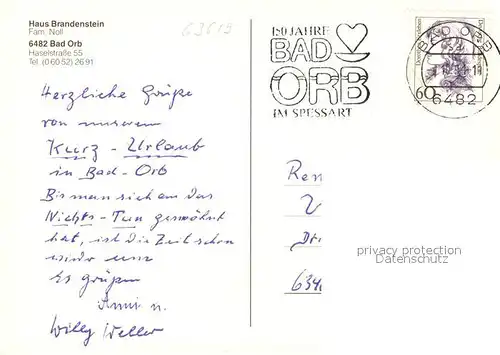 Haus Brandenstein
Fam. Noll
6482 Bad Orb
Haselstraße 55
Tel. (0 60 52) 26 91
63619
150 JAHRE
BAD
ORB
IM SPESSART
BAD ORB
60
6482
Herzliche Grüße
von unserem
Kurz-Urlaub
in Bad-Orb
Bis man sich an das
Nichts-Tun gewöhnt
hat, ist die Zeit schon
wieder um
Es grüßen
Anni u.
Willy Weller
Ren
privacy protection
Datenschutz
634